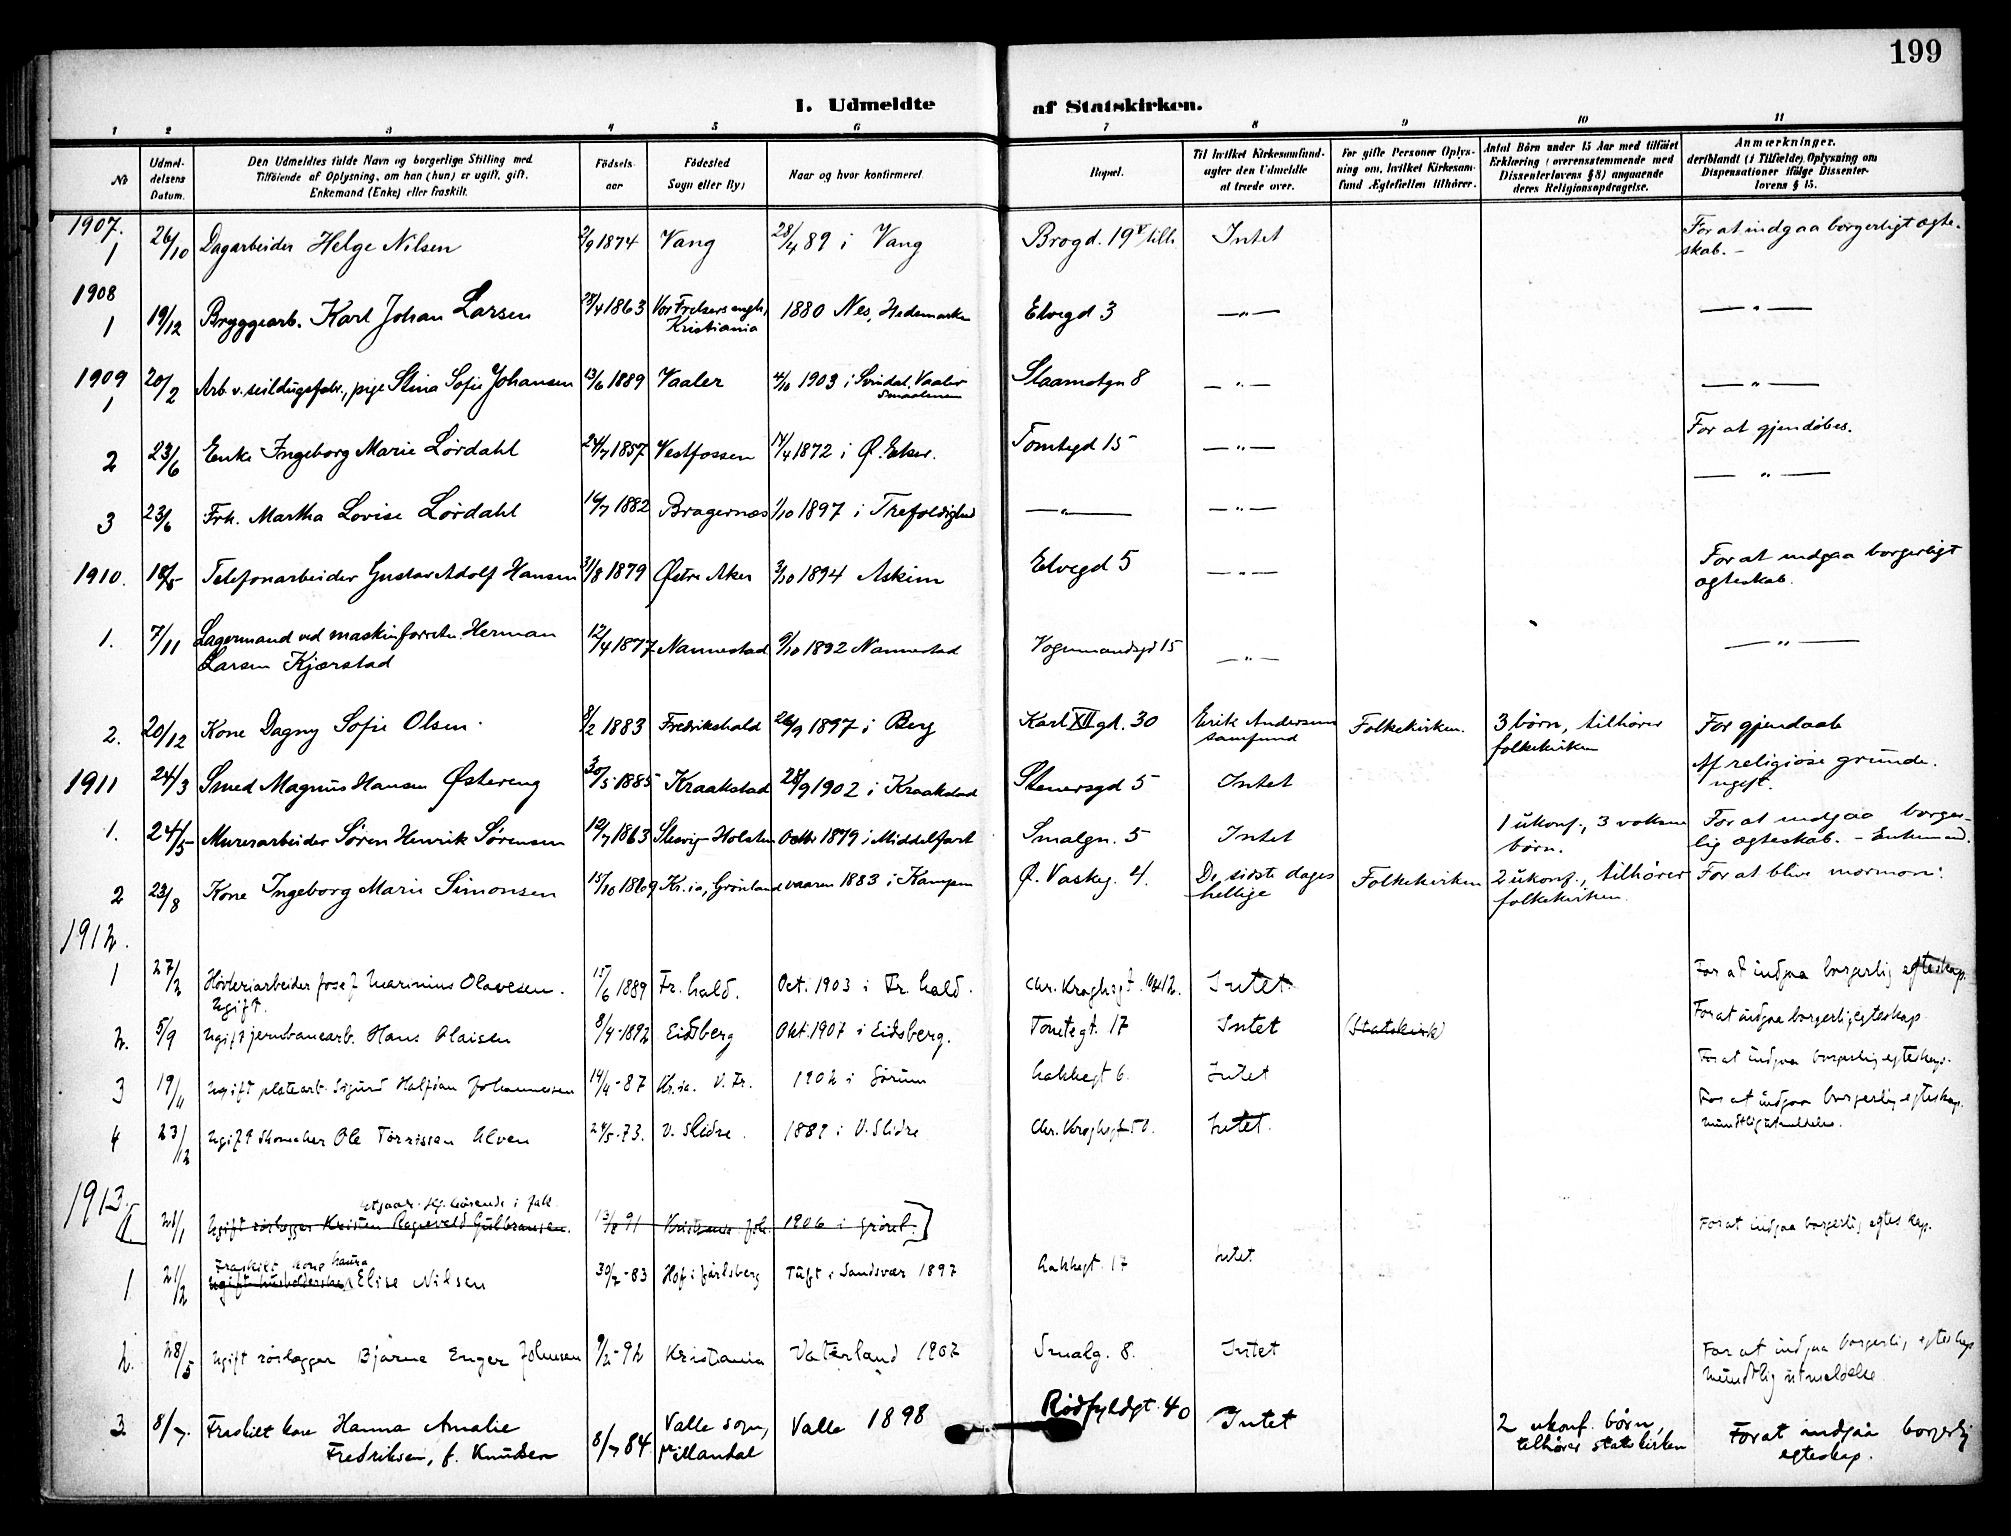 199
I. Udmeldte af Statskirken.
1 2 3 4 5 6 7 8 9 10 11
No
Udmeldelsens Datum.
Den Udmeldtes fulde Navn og borgerlige Stilling med
Tilføiende af Oplysning, om han (hun) er ugift, gift,
Enkemand (Enke) eller fraskilt.
Fødselsaar
Fødested
Sogn eller By)
Naar og hvor konfirmeret.
Bopæl.
Til hvilket Kirkesamfund
agter den Udmeldte
at træde over.
For gifte Personer Oplysning om, hvilket Kirkesamfund Ægtefællen tilhører.
Antal Børn under 15 Aar med tilføiet
Erklæring (overensstemmende med
Dissenterlovens § 8) angaaende
deres Religionsopdragelse.
Anmærkninger.
deriblandt (i Tilfælde) Oplysning om
Dispensationer ifølge Dissenterlovens § 15.
1907.
1 26/10 Dagarbeider Helge Nilsen 2/9 1874 Vang 28/4 89 i Vang Brogd. 19 Intet For at indgaa borgerligt ægteskab. –
1908
1 19/12 Bryggearb. Karl Johan Larsen 28/4 1863 Vor Frelsers, Kristiania 1880 Nes, Hedemarken Elvegd 3 —„— —„—
1909
1 20/2 Arb. v. seildugsfabr., pige Stina Sofie Johansen 13/6 1889 Vaaler 4/10 1903 i Svindal, Vaaler Smaalenene 8 —„— —„—
2 23/6 Enke Ingeborg Marie Lørdahl 24/7 1857 Vestfossen 14/4 1872 i Ø. Eker. Tomtegd 15 —„— For at gjendøbes.
3 23/6 Frk. Martha Lovise Lørdahl 16/7 1882 Bragernæs 1/10 1897 i Trefoldighed —„— —„— —„—
1910. 18/5 Telefonarbeider Gustav Adolf Hansen 31/8 1879 Østre Aker 3/10 1894 Askim Elvegd 5 —„— For at indgaa borgerligt ægteskab.
1. 7/11 Lagermand ved maskinforretn. Herman Larsen Kjærstad 12/4 1877 Nannestad 9/10 1892 Nannestad Vognmandsgd 15 —„— —„—
2. 20/12 Kone Dagny Sofie Olsen. 8/2 1883 Fredrikshald 26/9 1897 i Berg Karl XII gd. 30 Erik Andersens samfund Folkekirken. 3 børn, tilhører folkekirken For gjendaab
1911 24/3 Smed Magnus Hansen Østereng 30/5 1885 Kraakstad 28/9 1902 i Kraakstad Stenersgd 5 Intet Af religiøse grunde. ugift.
1. 24/5 Murerarbeider Søren Henrik Sørensen 12/7 1863 Slesvig-Holsten Octbr 1879 i Middelfart Smalgn. 5 Intet 1 ukonf., 3 voksne børn. For at indgaa borgerlig ægteskab. – Enkemand.
2 23/8 Kone Ingeborg Marie Simonsen 15/10 1869 Kr.ia, Grønland vaaren 1883 i Kampen Ø. Vaskeg. 4. De sidste dages hellige Folkekirken 2 ukonf., tilhører folkekirken. For at blive mormon.
1912.
1 27/2 Høvleriarbeider Josef Marinius Olavesen. Ugift. 15/6 1889 Fr.hald. Oct. 1903 i Fr.hald. Chr. Kroghsgt. Intet For at indgaa borgerlig egteskap.
2. 5/9 Ugift jernbanearb. Hans Olaisen 8/4-1892 Eidsberg Okt. 1907 i Eidsberg. Tomtegt. 17 Intet (Statskirk) For at indgaa borgerlig egteskap.
3 19/11 Ugift platearb. Sigurd Halfdan Johannessen 14/4-87 Kr.ia. V. Fr. 1902 i Sørum Lakkegt 6. Intet For at indgaa borgerlig egteskap.
4 23/12 Ugift Skomaker Ole Tørrissen Ulven 24/5-73. V. Slidre. 1889 i V. Slidre Chr. Kroghsgt 50. Intet. For at indgaa borgerlig egteskap. Mundtlig utmeldelse.
1913.
28/1 Ugift rørlægger Kristen Ragnvald Gulbransen. 13/8 91 1906 i Grønl. For at indgaa borgerlig egteskap.
1 21/2 Fraskilt kone Laura Elise Nilsen 30/7-83 Hof i Jarlsberg Tuft i Sandsvær 1897 Lakkegt. 17 Intet
2. 28/5 Ugift rørlægger Bjarne Enger Johnsen 9/2-92 Kristiania Vaterland 1907 Smalg. 8. Intet For at indgaa borgerlig egteskap Mundtlig utmeldelse.
3. 8/7. Fraskilt kone Hanna Amalie Fredriksen, f. Knudsen 8/7 84 Valle sogn, pr Mandal Valle 1898 Rødfyldgt. 40 Intet 2 ukonf. børn, tilhører statskirken For at indgaa borgerlig egteskap.